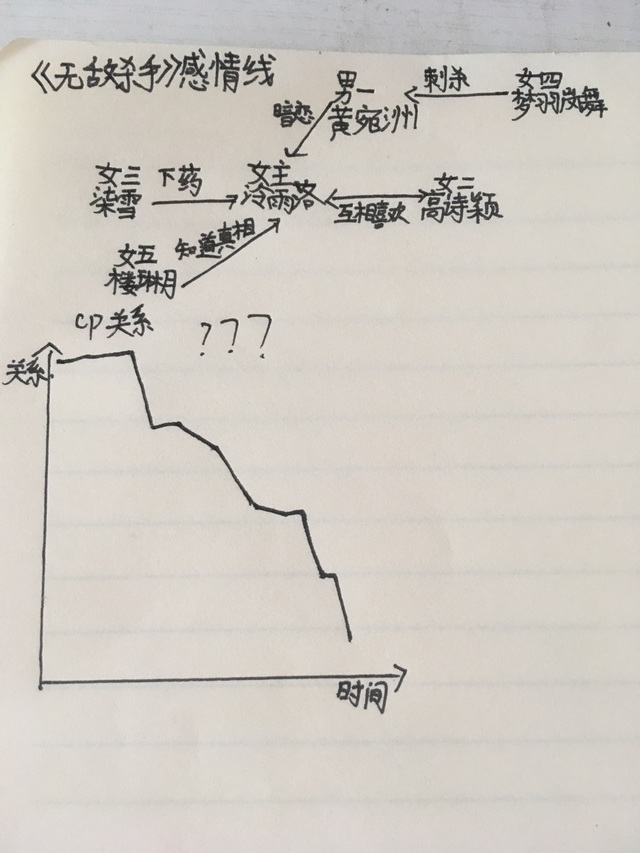 《无敌杀手》感情线
男一
黄宛洲
刺杀
女四
梦羽岚舞
暗恋
女三
柒雪
下药
女主
冷雨洛
互相喜欢
女二
高诗颖
女五
楼琳月
知道真相
cp关系
???
关系
时间